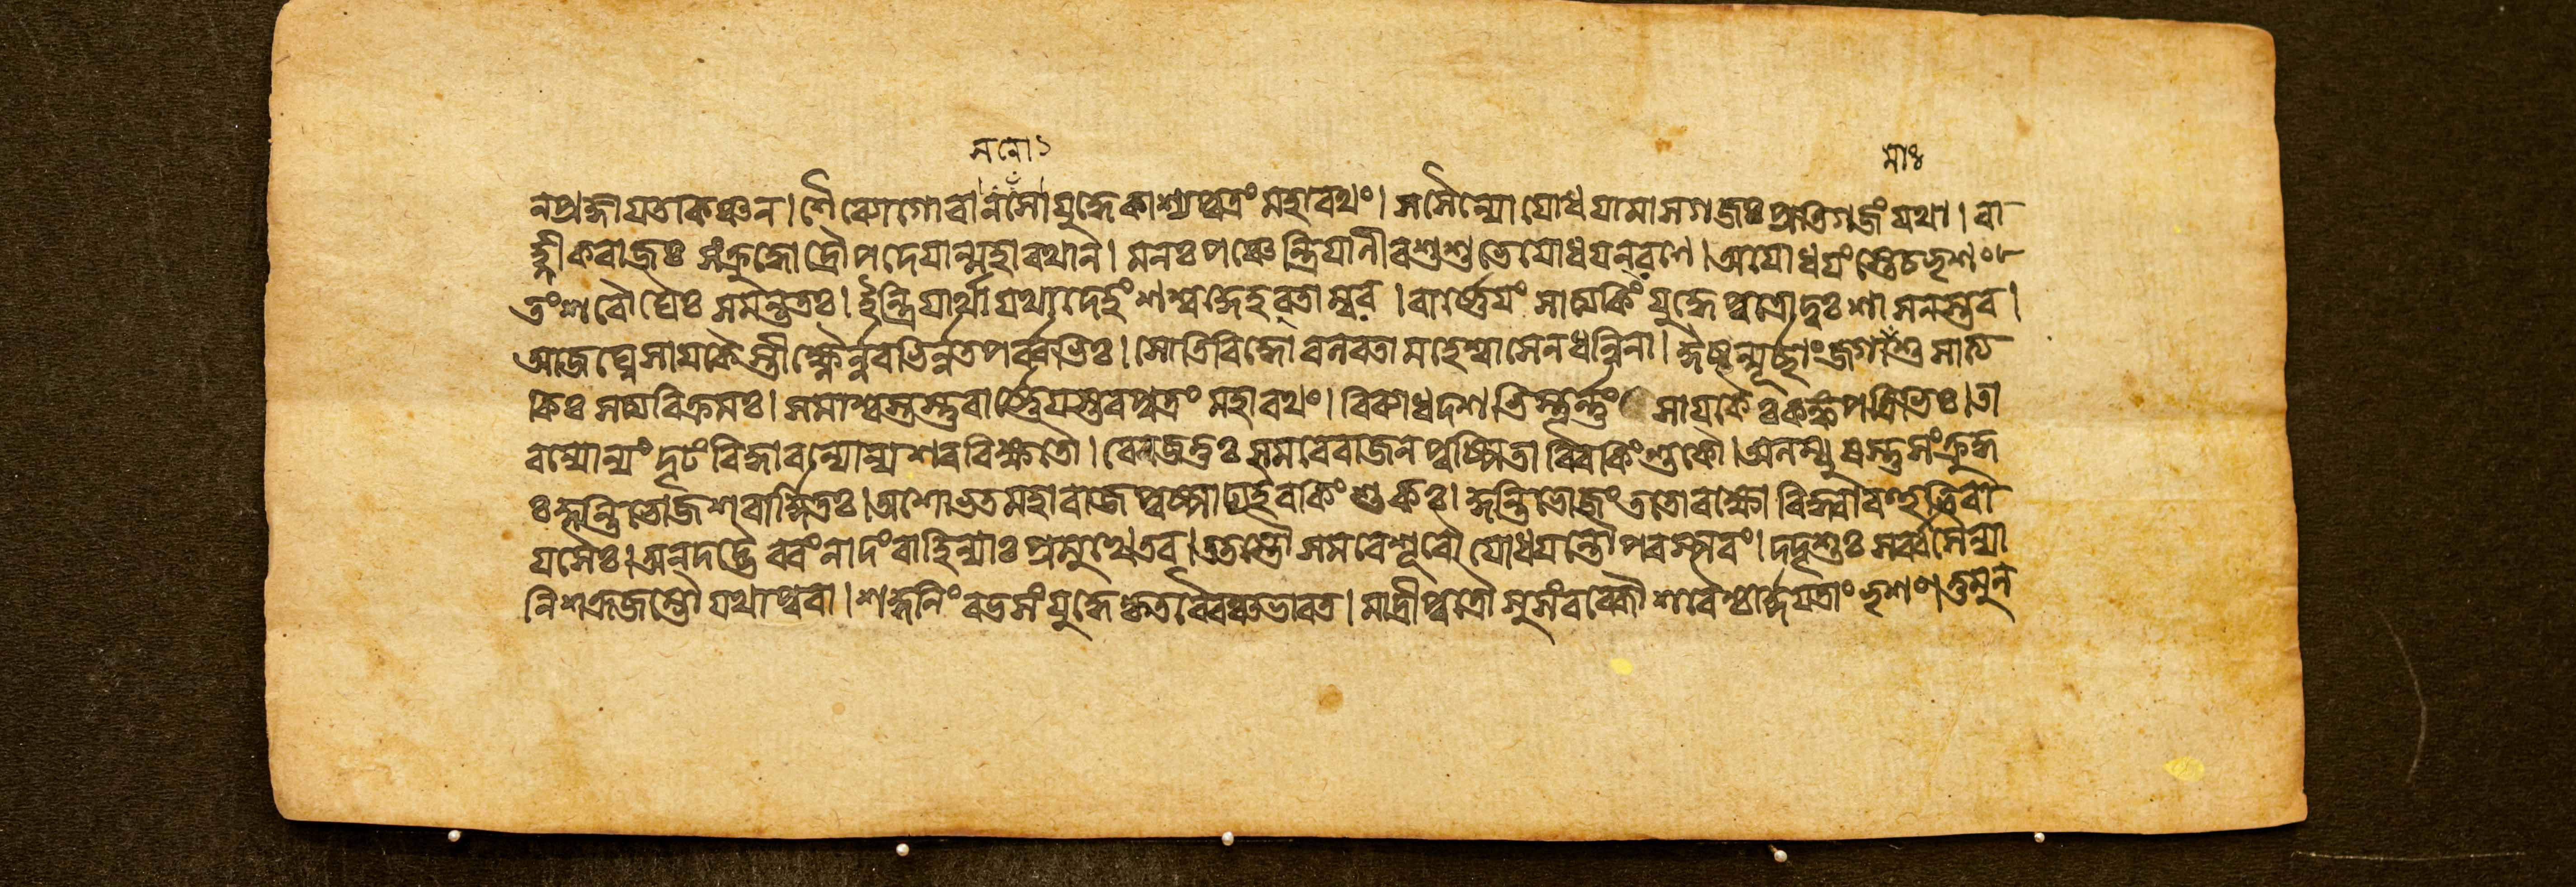 নপ্রজ্ঞাযতাকশ্চন। শৈব্যোগোবাসনোযুদ্ধেকাশ্যপুত্রং মহারথং। সসৈন্যোযোধযামাসগজঃপ্রতিগজংযথা। বা
হ্লীকরাজঃ সংক্রুদ্ধোদ্রৌপদেযান্মহারথান্। মনঃপঞ্চেন্দ্রিযানীবশুশুভেযোধযন্রণে। অযোধযংস্তেচভৃশং
তংশরৌঘৈঃ সমন্ততঃ। ইন্দ্রিযার্থাযথাদেহং শশ্বদ্দেহবতাম্বর। বার্ষ্ণেযং সাত্যকিং যুদ্ধেপুত্রোদুঃশাসনস্তব।
আজঘ্নেসাযকৈস্তীক্ষ্ণৈর্ন্নবভির্ন্নতপর্ব্বভিঃ। সোতিবিদ্ধোবলবতামহেষ্বাসেনধন্বিনা। ঈষন্মূর্চ্ছাংজগামাশুসাত্য
কিঃ সত্যবিক্রমঃ। সমাশ্বস্তস্তুবার্ষ্ণেযস্তবপুত্রং মহারথং। বিব্যাধদশভিস্তূর্ন্নং সাযকৈঃকঙ্কপত্রিভিঃ। তা
বন্যোন্যং দৃঢং বিদ্ধাবন্যোন্যশরবিক্ষতৌ। রেজতুঃ সমরেরাজন্পুষ্পিতাবিবকিংশুকৌ। অলম্বুষস্তুসংক্রুদ্ধ
ঃকুন্তিভোজশরার্দ্দিতঃ। অশোভতমহারাজপুষ্পাঢ্যইবকিংশুকঃ। কুন্তিভোজং ততোরক্ষোবিদ্ধ্বাবহুভিরা
যসৈঃ। অনদদ্ভৈরবংনাদংবাহিন্যাঃপ্রমুখেতব। ততস্তৌসমরেশূরৌযোধযন্তৌপরস্পরং। দদৃশুঃ সর্ব্বসৈন্যা
নিশক্রজম্ভৌযথাপুরা। শকুনিংরভসংযুদ্ধেকৃতবৈরঞ্চভারত। মাদ্রীপুত্রৌসুসংরব্ধৌশরৈশ্চার্দ্দযতাংভৃশং। তুমুল